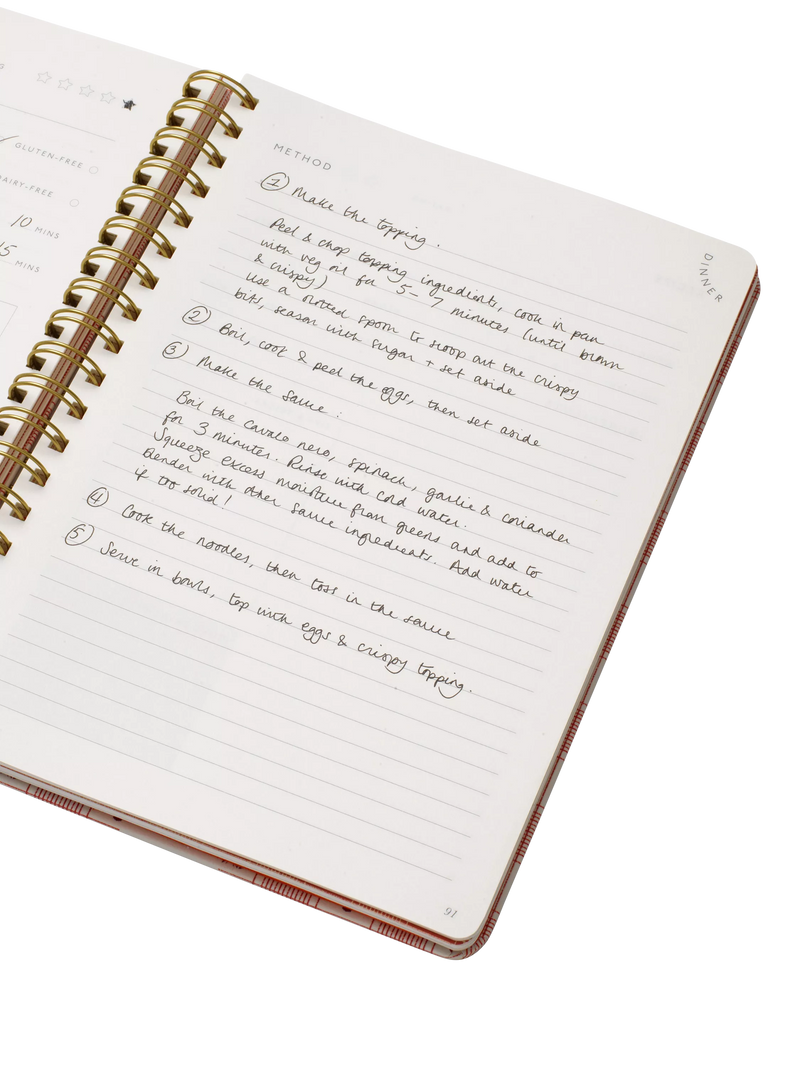 GLUTEN-FREE
AIRY-FREE
10 MINS
15 MINS
METHOD
DINNER
① Make the topping.
Peel & chop topping ingredients, cook in pan
with veg oil for 5-7 minutes (until brown
& crispy)
Use a slotted spoon to scoop out the crispy
bits, season with sugar + set aside
② Boil, cook & peel the eggs, then set aside
③ Make the sauce:
Boil the cavalo nero, spinach, garlic & coriander
for 3 minutes. Rinse with cold water.
Squeeze excess moisture from greens and add to
blender with other sauce ingredients. Add water
if too solid!
④ Cook the noodles, then toss in the sauce
⑤ Serve in bowls, top with eggs & crispy topping.
91